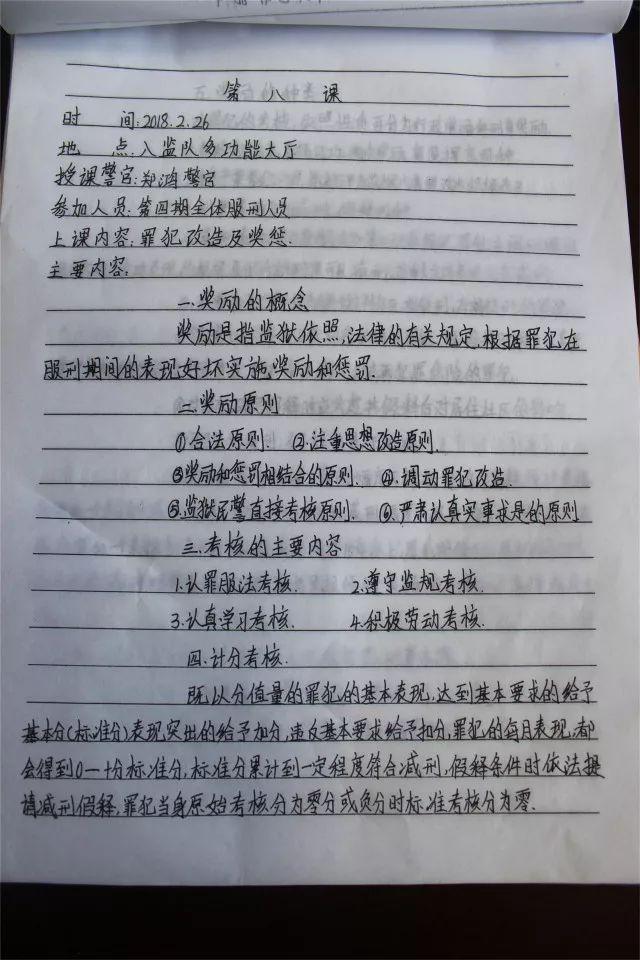 第八课
时 间:2018.2.26
地 点:入监队多功能大厅
授课警官:郑鸿警官
参加人员:第四期全体服刑人员
上课内容:罪犯改造及奖惩.
主要内容:
一.奖励的概念
奖励是指监狱依照,法律的有关规定,根据罪犯在
服刑期间的表现好坏实施,奖励和惩罚.
二.奖励原则
①合法原则. ②注重思想改造原则.
③奖励和惩罚相结合的原则. ④.调动罪犯改造.
⑤.监狱民警直接考核原则. ⑥.严肃认真实事求是的原则
三.考核的主要内容
1.认罪服法考核. 2.遵守监规考核.
3.认真学习考核. 4.积极劳动考核.
四.计分考核.
既以分值量的罪犯的基本表现,达到基本要求的给予
基本分(标准分)表现突出的给予加分,违反基本要求给予扣分,罪犯的每月表现,都
会得到0一十分标准分,标准分累计到一定程度符合减刑,假释条件时依法提
请减刑假释,罪犯当身原始考核分为零分或负分时标准考核分为零.